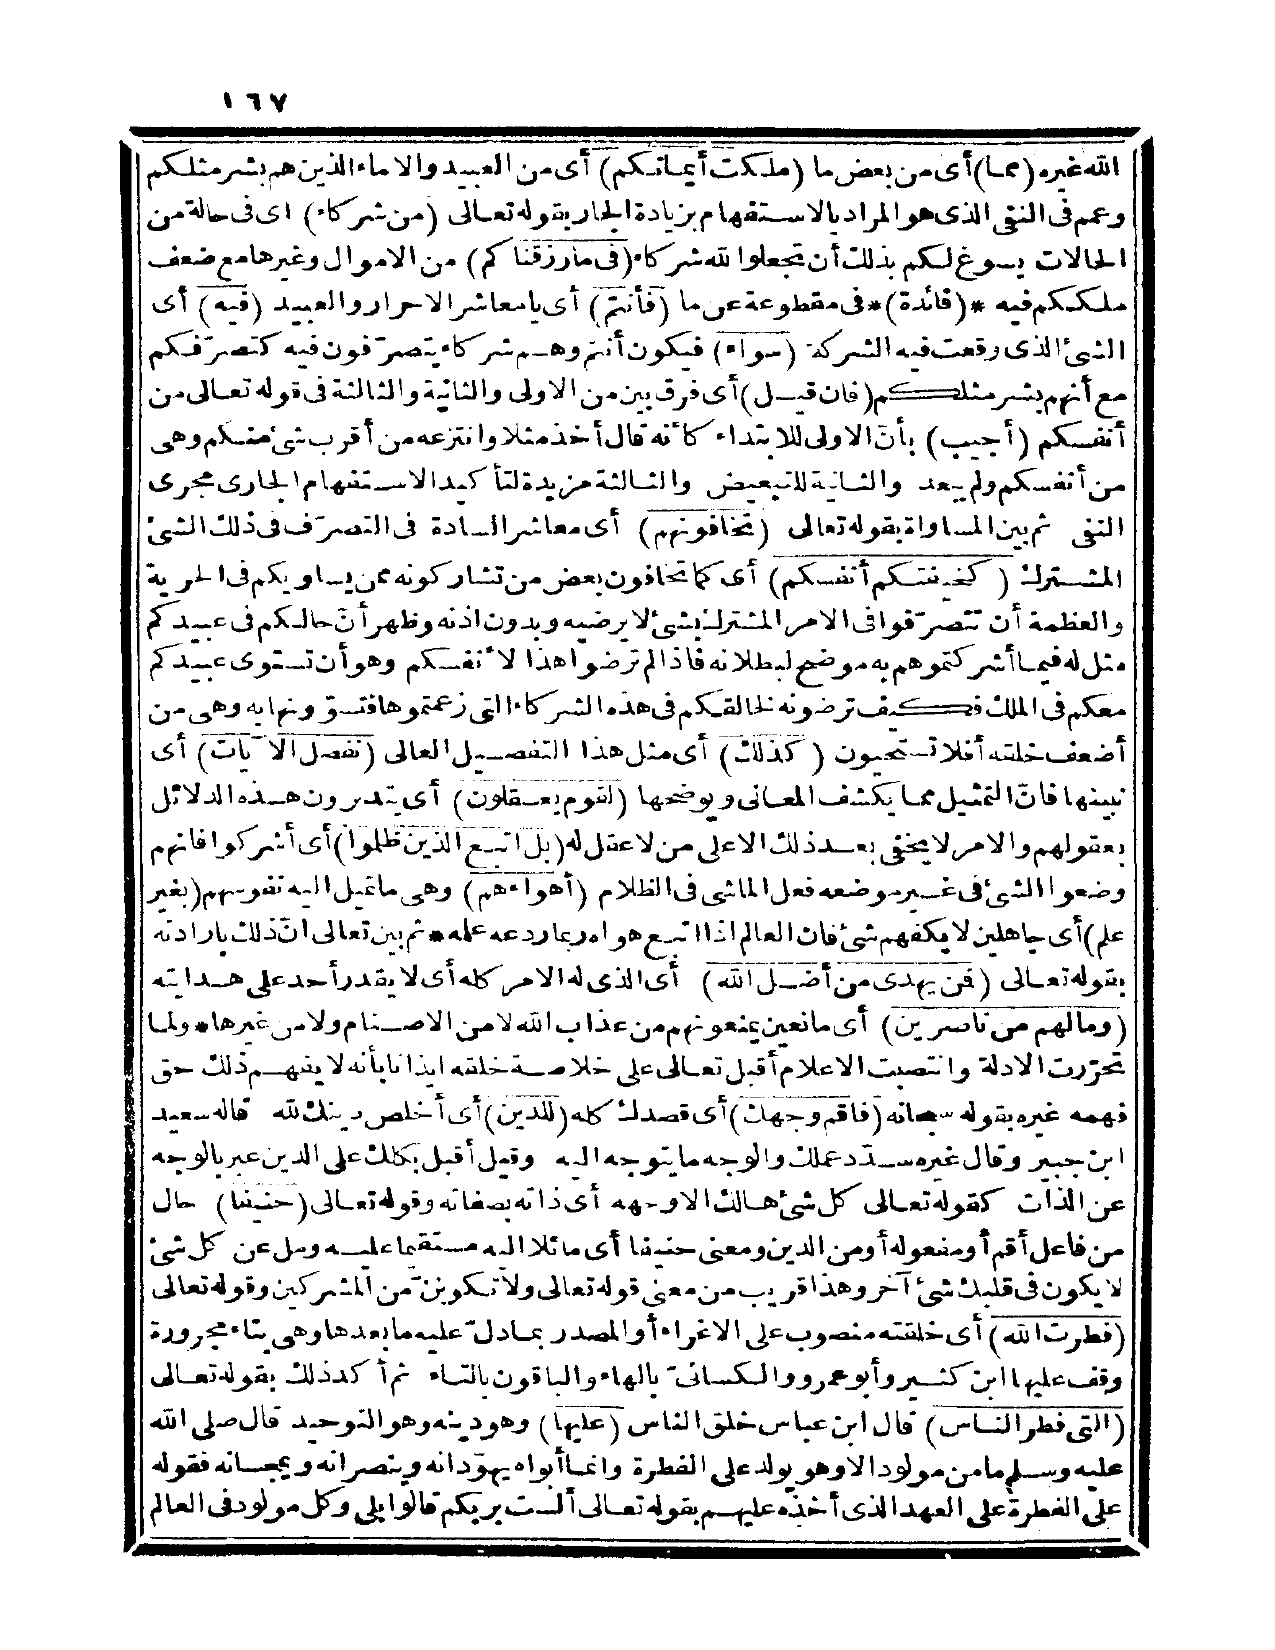 ١٦٧
الله غيره (مما) أى من بعض ما (ملكت أيمانكم) أى من العبيد والاماء الذين هم بشر مثلكم
وعمم فى النفى الذى هو المراد بالاستفهام بزيادة الجار بقوله تعالى (من شركاء) اى فى حالة من
الحالات يسوغ لكم بذلك أن تجعلوا لله شركاء (فى ما رزقناكم) من الاموال وغيرها مع ضعف
ملككم فيه *(فائدة)* فى مقطوعة عن ما (فأنتم) أى يا معاشر الاحرار والعبيد (فيه) أى
الشئ الذى وقعت فيه الشركة (سواء) فيكون أنتم وهم شركاء يتصرّفون فيه كتصرّفكم
مع أنهم بشر مثلكم (فان قيل) أى فرق بين من الاولى والثانية والثالثة فى قوله تعالى من
أنفسكم (أجيب) بأنّ الاولى للابتداء كأنه قال أخذ مثلا وانتزعه من أقرب شئ منكم وهى
من أنفسكم ولم يبعد والثانية للتبعيض والثالثة مزيدة لتأكيد الاستفهام الجارى مجرى
النفى ثم بين المساواة بقوله تعالى (تخافونهم) أى معاشر السادة فى التصرّف فى ذلك الشئ
المشترك (كخيفتكم أنفسكم) أى كما تخافون بعض من تشاركونه ممن يساويكم فى الحرية
والعظمة أن تتصرّفوا فى الامر المشترك بشئ لا يرضيه وبدون اذنه وظهر أنّ حالكم فى عبيدكم
مثل له فيما أشركتموهم به موضح لبطلانه فاذا لم ترضوا هذا لأنفسكم وهو أن تستوى عبيدكم
معكم فى الملك فكيف ترضونه لخالقكم فى هذه الشركاء التى زعمتموها فتسوّونها به وهى من
أضعف خلقه أفلا تستحيون (كذلك) أى مثل هذا التفصيل العالى (نفصل الآيات) أى
نبينها فانّ التمثيل مما يكشف المعانى ويوضحها (لقوم يعقلون) أى يتدبرون هذه الدلائل
بعقولهم والامر لا يخفى بعد ذلك الاعلى من لا عقل له (بل اتبع الذين ظلموا) أى أشركوا فانهم
وضعوا الشئ فى غير موضعه فعل الماشى فى الظلام (أهواءهم) وهى ما تميل اليه نفوسهم (بغير
علم) أى جاهلين لا يكفهم شئ فان العالم اذا اتبع هواه ربما ردعه علمه * ثم بين تعالى انّ ذلك بارادته
بقوله تعالى (فمن يهدى من أضل الله) أى الذى له الامر كله أى لا يقدر أحد على هدايته
(وما لهم من ناصرين) أى مانعين يمنعونهم من عذاب الله لا من الاصنام ولا من غيرها * ولما
تحرّرت الادلة وانتصبت الاعلام أقبل تعالى على خلاصة خلقه ايذانا بأنه لا يفهم ذلك حق
فهمه غيره بقوله سبحانه (فأقم وجهك) أى قصدك كله (للدين) أى أخلص دينك لله قاله سعيد
ابن جبير وقال غيره سدّد عملك والوجه ما يتوجه اليه وقيل أقبل بكلك على الدين عبر بالوجه
عن الذات كقوله تعالى كل شئ هالك الا وجهه أى ذاته بصفاته وقوله تعالى (حنيفا) حال
من فاعل أقم أو مفعوله أو من الدين ومعنى حنيفا أى مائلا اليه مستقيما عليه ومل عن كل شئ
لا يكون فى قلبك شئ آخر وهذا قريب من معنى قوله تعالى ولا تكوننّ من المشركين وقوله تعالى
(فطرت الله) أى خلقته منصوب على الاغراء أو المصدر بما دلّ عليه ما بعدها وهى بتاء مجرورة
وقف عليها ابن كثير وأبو عمرو والكسائىّ بالهاء والباقون بالتاء ثم أكد ذلك بقوله تعالى
(التى فطر الناس) قال ابن عباس خلق الناس (عليها) وهو دينه وهو التوحيد قال صلى الله
عليه وسلم ما من مولود الا وهو يولد على الفطرة وانما أبواه يهوّدانه وينصرانه ويمجسانه فقوله
على الفطرة على العهد الذى أخذه عليهم بقوله تعالى ألست بربكم قالوا بلى وكل مولود فى العالم